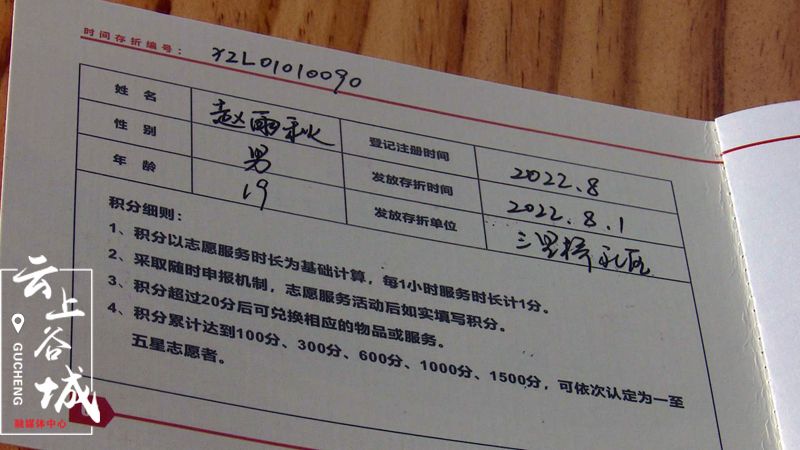 时间存折编号： XZL01010090
姓名 赵雨秋 登记注册时间 2022.8
性别 男 发放存折时间 2022.8.1
年龄 19 发放存折单位 三里桥社区
积分细则：
1、积分以志愿服务时长为基础计算，每1小时服务时长计1分。
2、采取随时申报机制，志愿服务活动后如实填写积分。
3、积分超过20分后可兑换相应的物品或服务。
4、积分累计达到100分、300分、600分、1000分、1500分，可依次认定为一至
五星志愿者。
云上谷城
GUCHENG
融媒体中心